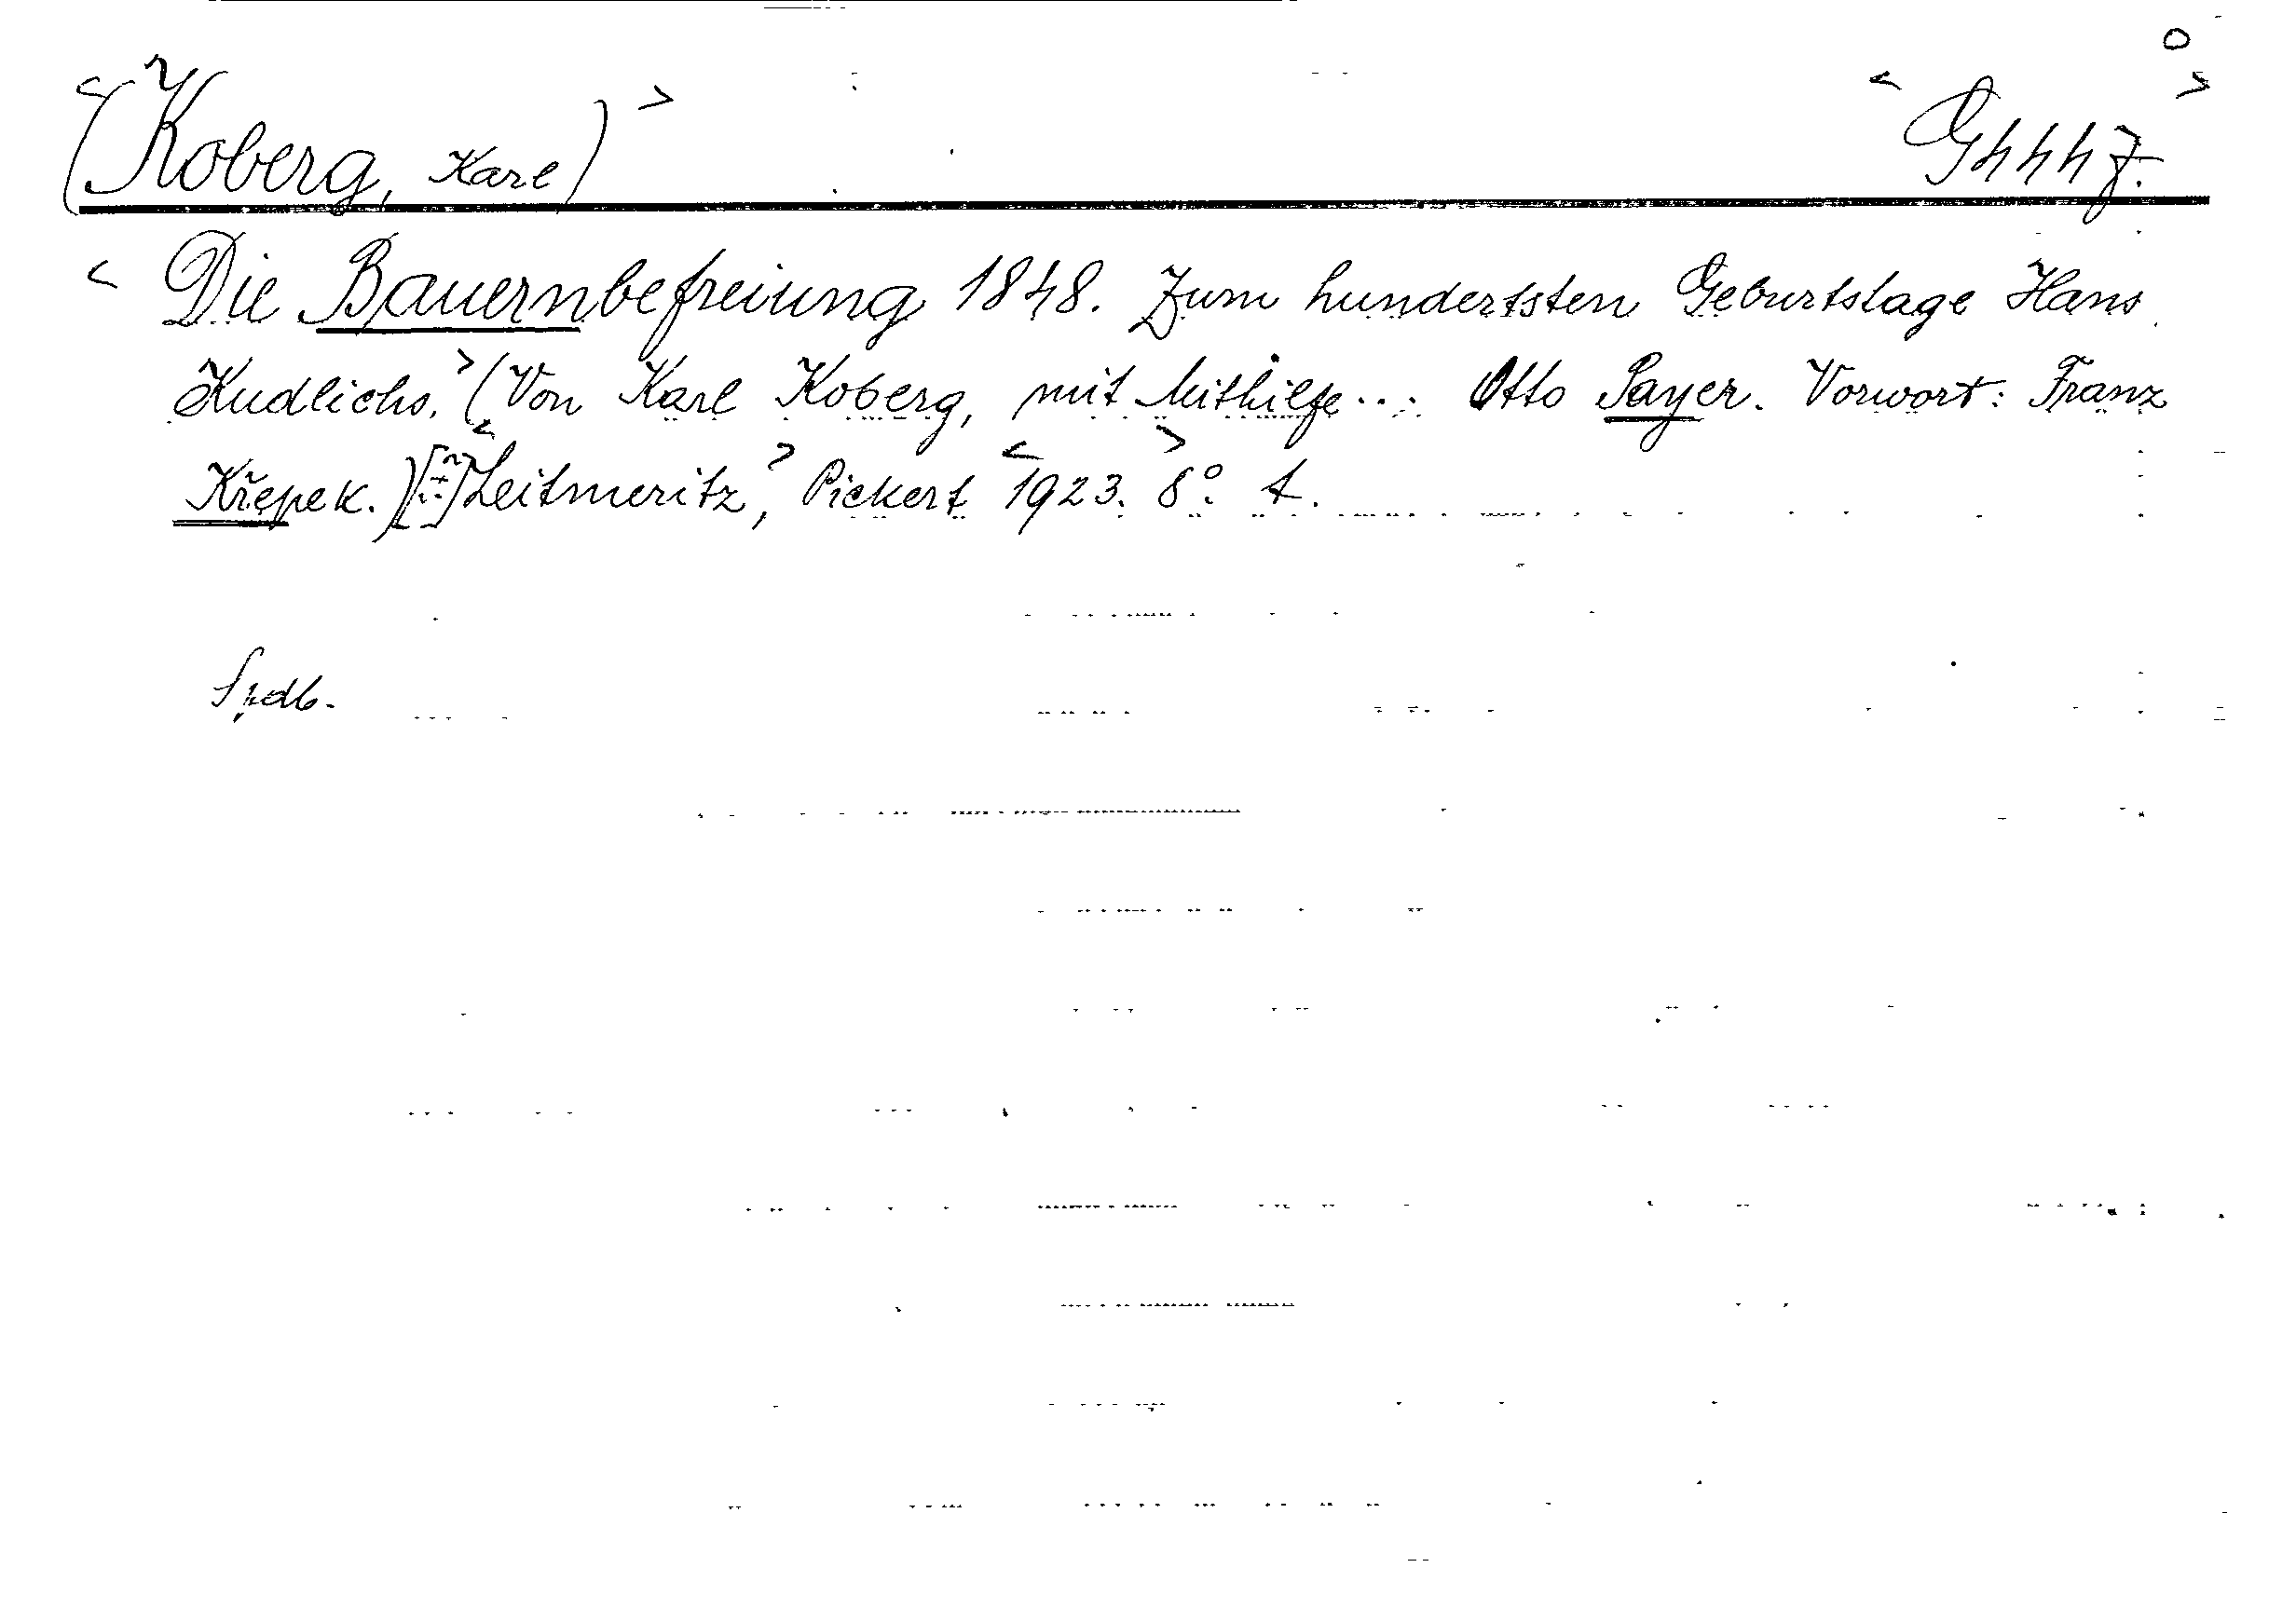 <(Koberg, Karl)> <G4447.>
< Die Bauernbefreiung 1848. Zum hundertsten Geburtstage Hans
Kudlichs.> (Von Karl Koberg, mit Mithilfe... Otto Payer. Vorwort: Franz
Křepek.) <Leitmeritz,> Pickert <1923.> 8°. A.